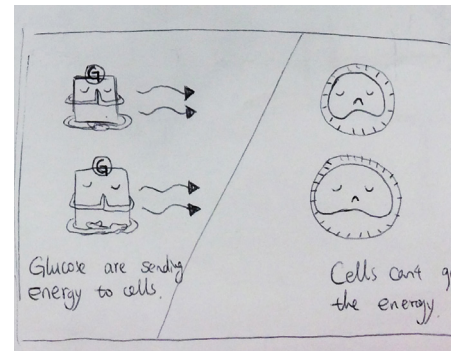 G
G
Glucose are sending
energy to cells.
Cells cant g
the energy.